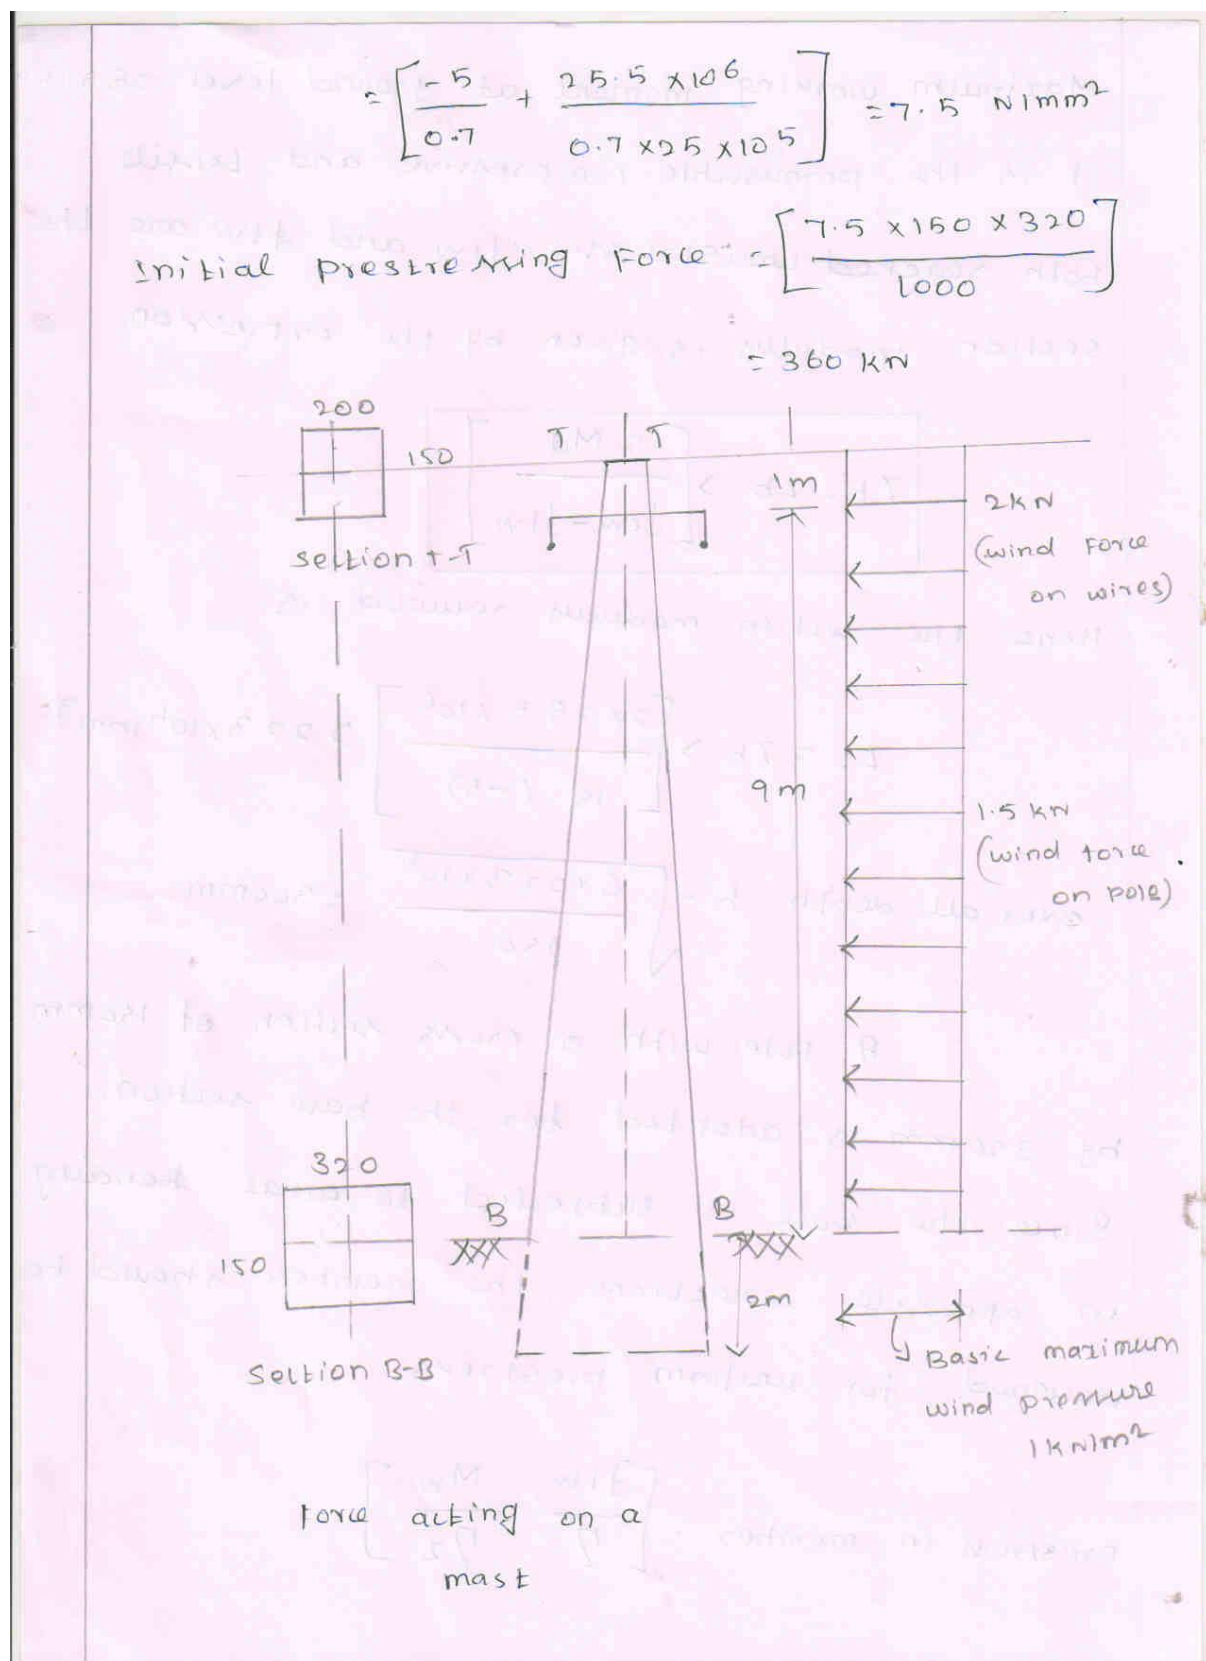 = [ -5 / 0.7 + 25.5 × 10^6 / 0.7 × 25 × 10^5 ] = 7.5 N/mm²
Initial prestressing Force = [ 7.5 × 150 × 320 / 1000 ]
= 360 KN
200
150
T T
1m
2KN
(wind Force
on wires)
Section T-T
9m
1.5 KN
(wind force
on pole)
320
150
B B
2m
Section B-B
Basic maximum
wind pressure
1KN/m²
Force acting on a
mast